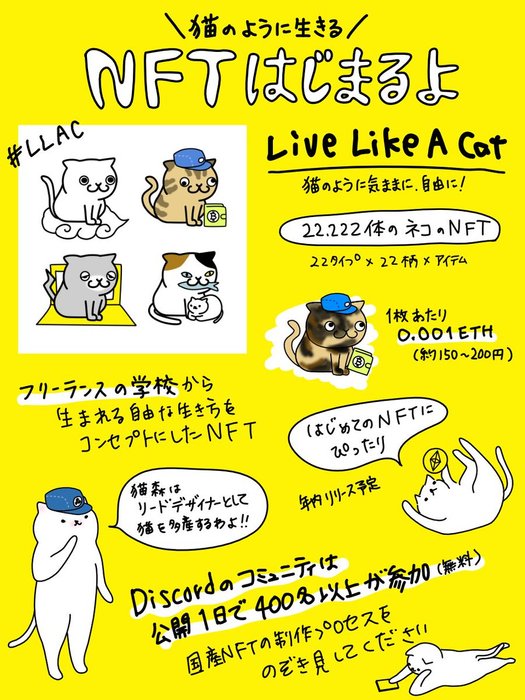 ＼猫のように生きる／
NFTはじまるよ
#LLAC
Live Like A Cat
猫のように気ままに、自由に!
22.222体のネコのNFT
22タイプ×22柄×アイテム
1枚あたり
0.001ETH
(約150~200円)
フリーランスの学校から
生まれる自由な生き方を
コンセプトにしたNFT
はじめてのNFTに
ぴったり
年内リリース予定
猫森は
リードデザイナーとして
猫を多産するわよ!!
Discordのコミュニティは
公開1日で400名以上が参加(無料)
国産NFTの制作プロセスを
のぞき見してください